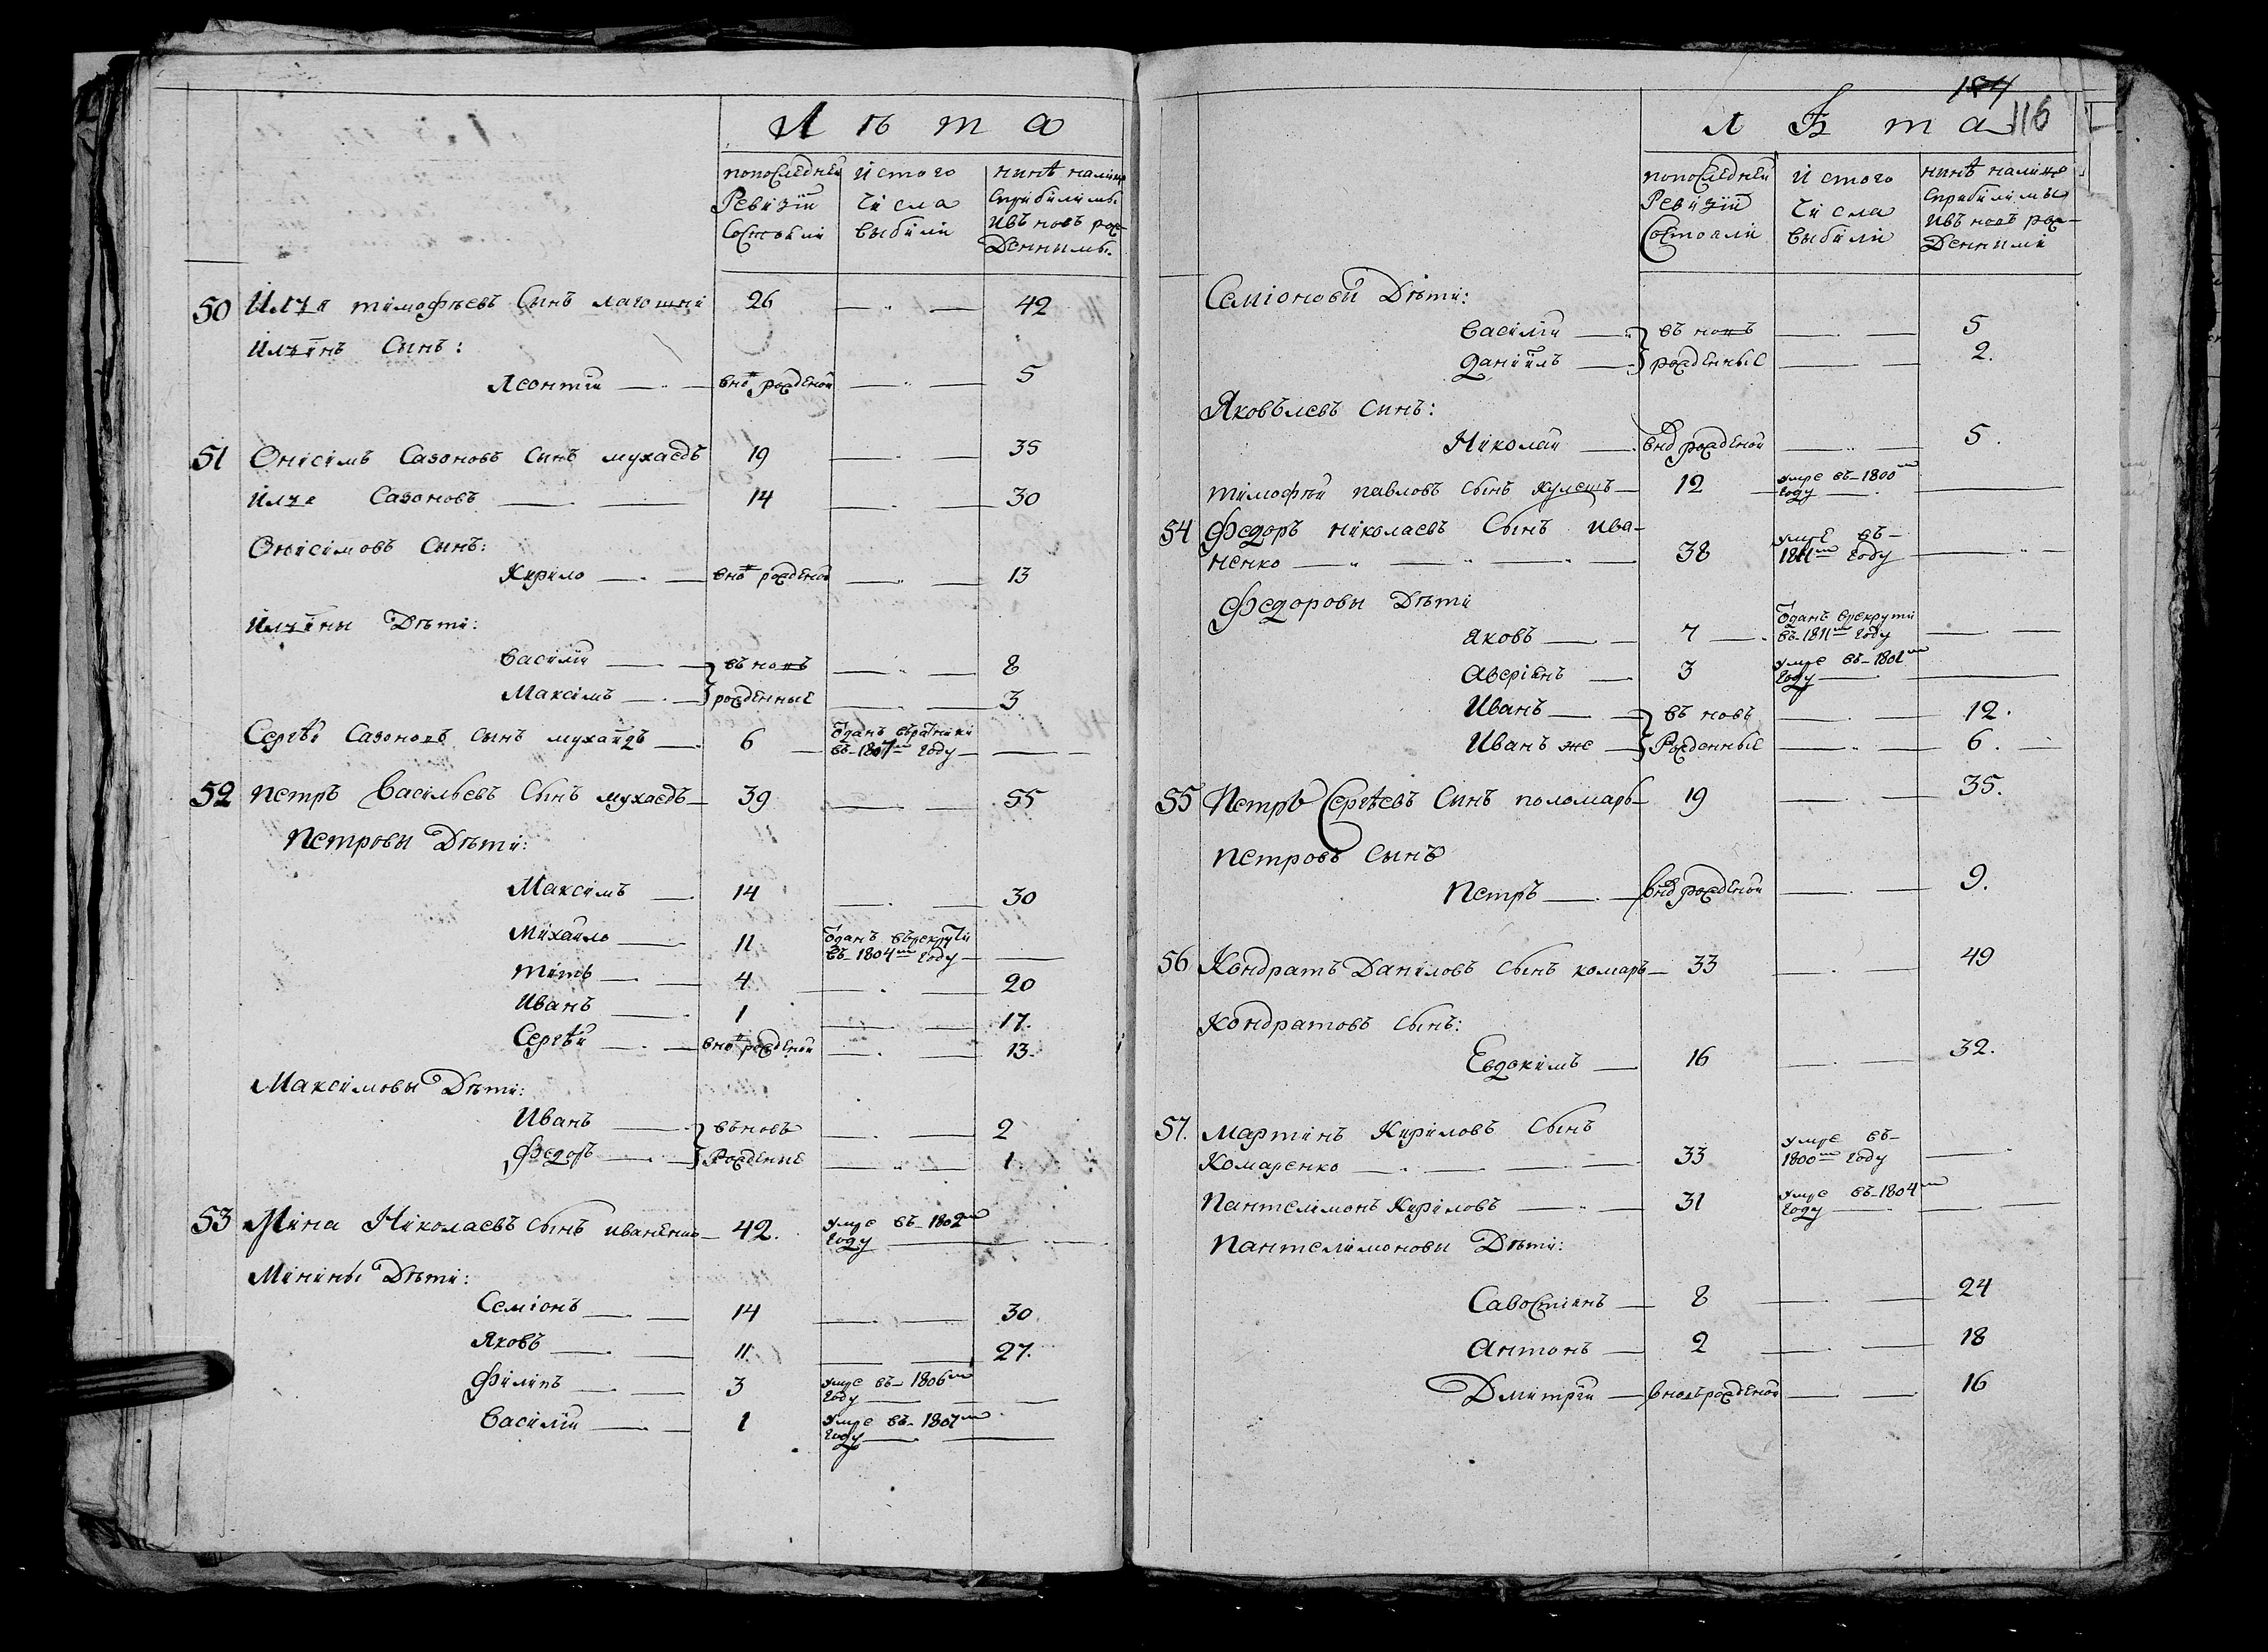 Л ѣ т а
попоследней Ревизіи Состояли
и стого числа выбыли
нинѣ налице Сприбилими ивъ новь рожденними
50 Илья тимофѣевъ Сынъ 26 — 42
Ильинъ Сынъ:
Леонтій — вно рожденой — 5
51 Онисимъ Сазоновъ Сынъ мухаедъ 19 — 35
илья Сазоновъ — 14 — 30
Онисимовъ Сынъ:
Кирило — вно рожденой — 13
Ильины Дѣти:
Василій — въ новь — 8
Максимъ — рожденные — 3
Сергѣй Сазоновъ Сынъ мухаидъ — 6 — въ 1807м году —
52 Петръ Васильевъ Сынъ мухаедъ — 39 — 55
Петровы Дѣти:
Максимъ — 14 — 30
Михайло — 11 отданъ върекрути въ 1804м году —
титъ — 4 — 20
Иванъ — 1 — 17.
Сергѣй — вно рожденой — 13.
Максимовы Дѣти:
Иванъ — въновь — 2
Федоръ — Рожденые — 1
53 Мина Николаевъ Сынъ иваненко — 42. умре въ 1802м году —
Минины Дѣти:
Семіонъ — 14 — 30
Яковъ — 11 — 27.
Филипъ — 3 умре въ 1806м году —
Василій — 1 умре въ 1807м году —
184
116
Л ѣ т а
попоследней Ревизіи Состояли
и стого числа выбили
нинѣ налице Сприбилимы ивъ новь рожденними
Семіонови Дѣти:
Василій — въ новь — 5
Даніилъ — рожденные — 2.
Яковълевъ Синъ:
Николай — вно рожденой — 5.
тимофѣй павловъ Сынъ кулешъ — 12 — умре въ 1800м году —
54 Федоръ николаевъ Сынъ ива-
ненко — 38 умре въ 1811м году —
Федоровы Дѣти
яковъ — 7 — отданъ врекрути въ 1811м году —
аверіянъ — 3 умре въ 1801м году —
Иванъ — въ новь — 12.
Иванъ же — Рожденные — 6.
55 Петръ Сергѣевъ Синъ поломарь — 19 — 35.
Петровъ Сынъ
Петръ — вно рожденой — 9.
56 Кондратъ Даниловъ Сынъ комаръ — 33 — 49
Кондратовъ Сынъ:
Евдокимъ — 16 — 32.
57. Мартинъ Кириловъ Сынъ
Комаренко — 33 умре въ 1800м году —
Пантелимонъ Кириловъ — 31 умре въ 1804м году —
Пантелимонови Дѣти:
Савостіянъ — 8 — 24
антонъ — 2 — 18
Дмитрій — вновь рожденой — 16